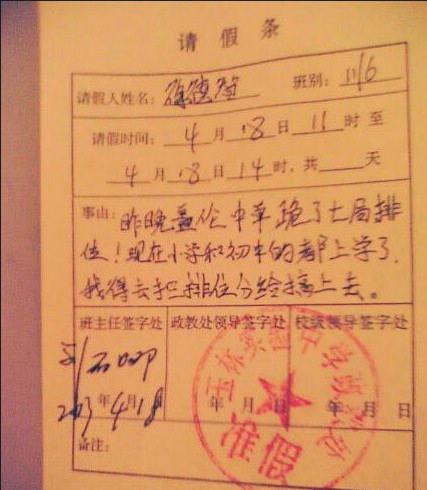 请假条
请假人姓名: 班别: 1116
请假时间: 4月18日11时至
4月18日14时, 共 天
事由: 昨晚盖伦中单跪了七局排
位!现在小学和初中的都上学了,
我得去把排位分给搞上去。
班主任签字处 政教处领导签字处 校级领导签字处
2013年4月18 年 月 日 年 月 日
玉林实验中学
准假
备注: